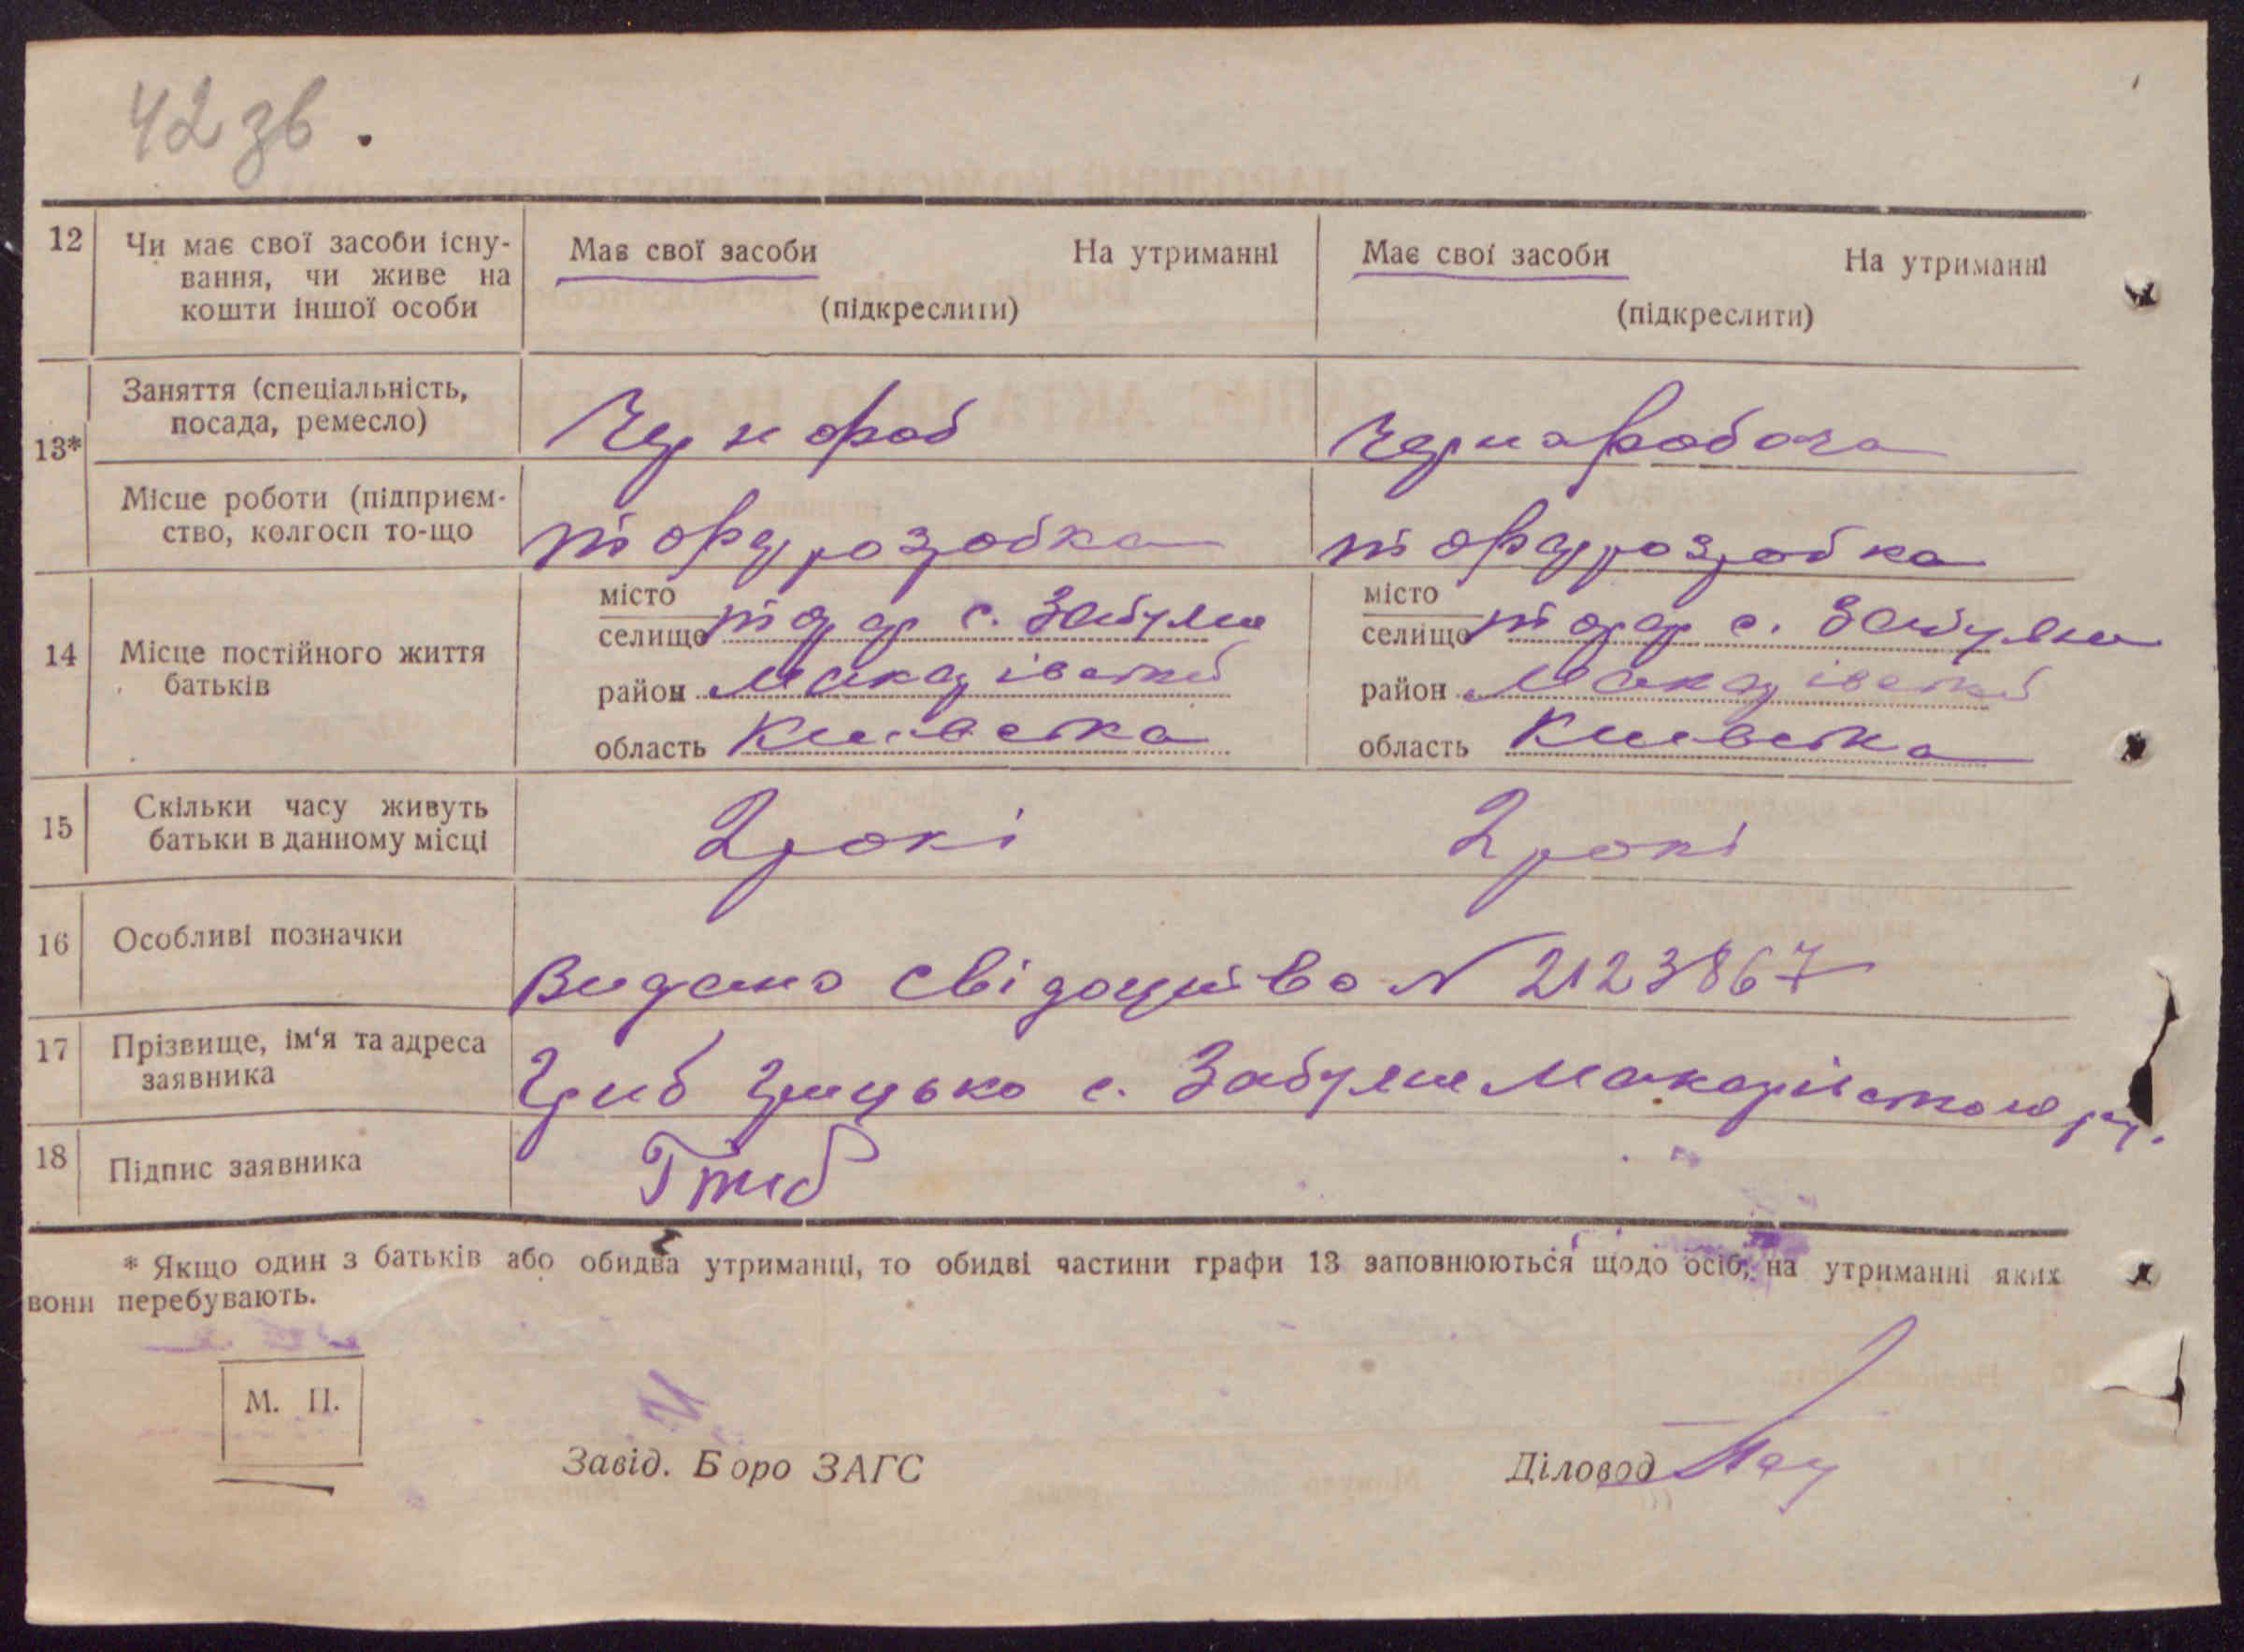 42 зв.
12 Чи має свої засоби існу- Має свої засоби На утриманні Має свої засоби На утриманні
вання, чи живе на
кошти іншої особи (підкреслити) (підкреслити)
13* Заняття (спеціальність,
посада, ремесло) Чернороб Чернаробоча
Місце роботи (підприєм-
ство, колгосп то-що торфрозробка торфрозробка
14 Місце постійного життя
батьків
місто
селище с. Забуяння
район Макарівский
область Киівска
місто
селище с. Забуяння
район Макарівский
область Киівска
15 Скільки часу живуть
батьки в данному місці 2 рокі 2 рокі
16 Особливі позначки Видано свідоцтво N 2123867
17 Прізвище, ім'я та адреса
заявника Гриб Грицько с. Забуяня Макарівского р-н.
18 Підпис заявника Гриб
* Якщо один з батьків або обидва утриманці, то обидві частини графи 13 заповнюються щодо осіб, на утриманні яких
вони перебувають.
М. П.
Завід. Боро ЗАГС Діловод